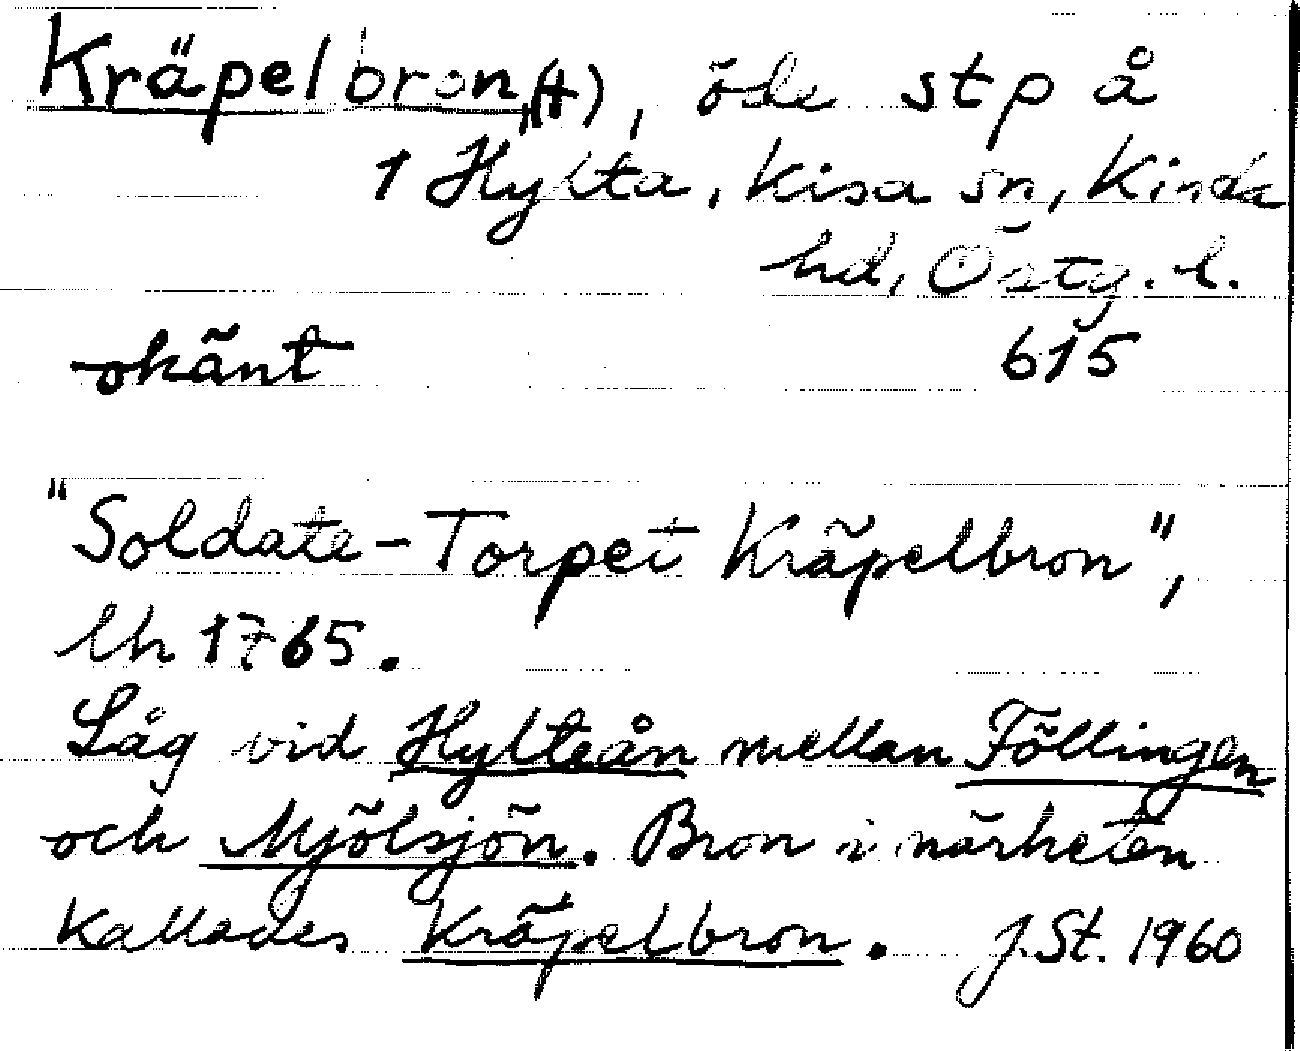 Kräpelbron (†), öde stp å
1 Hylta, Kisa sn, Kinda
hd, Östg. l.
okänt 615
"Soldate-Torpet Kräpelbron",
lh 1765.
Låg vid Hylteån mellan Föllingen
och Mjölsjön. Bron i närheten
kallades Kräpelbron. J.St. 1960